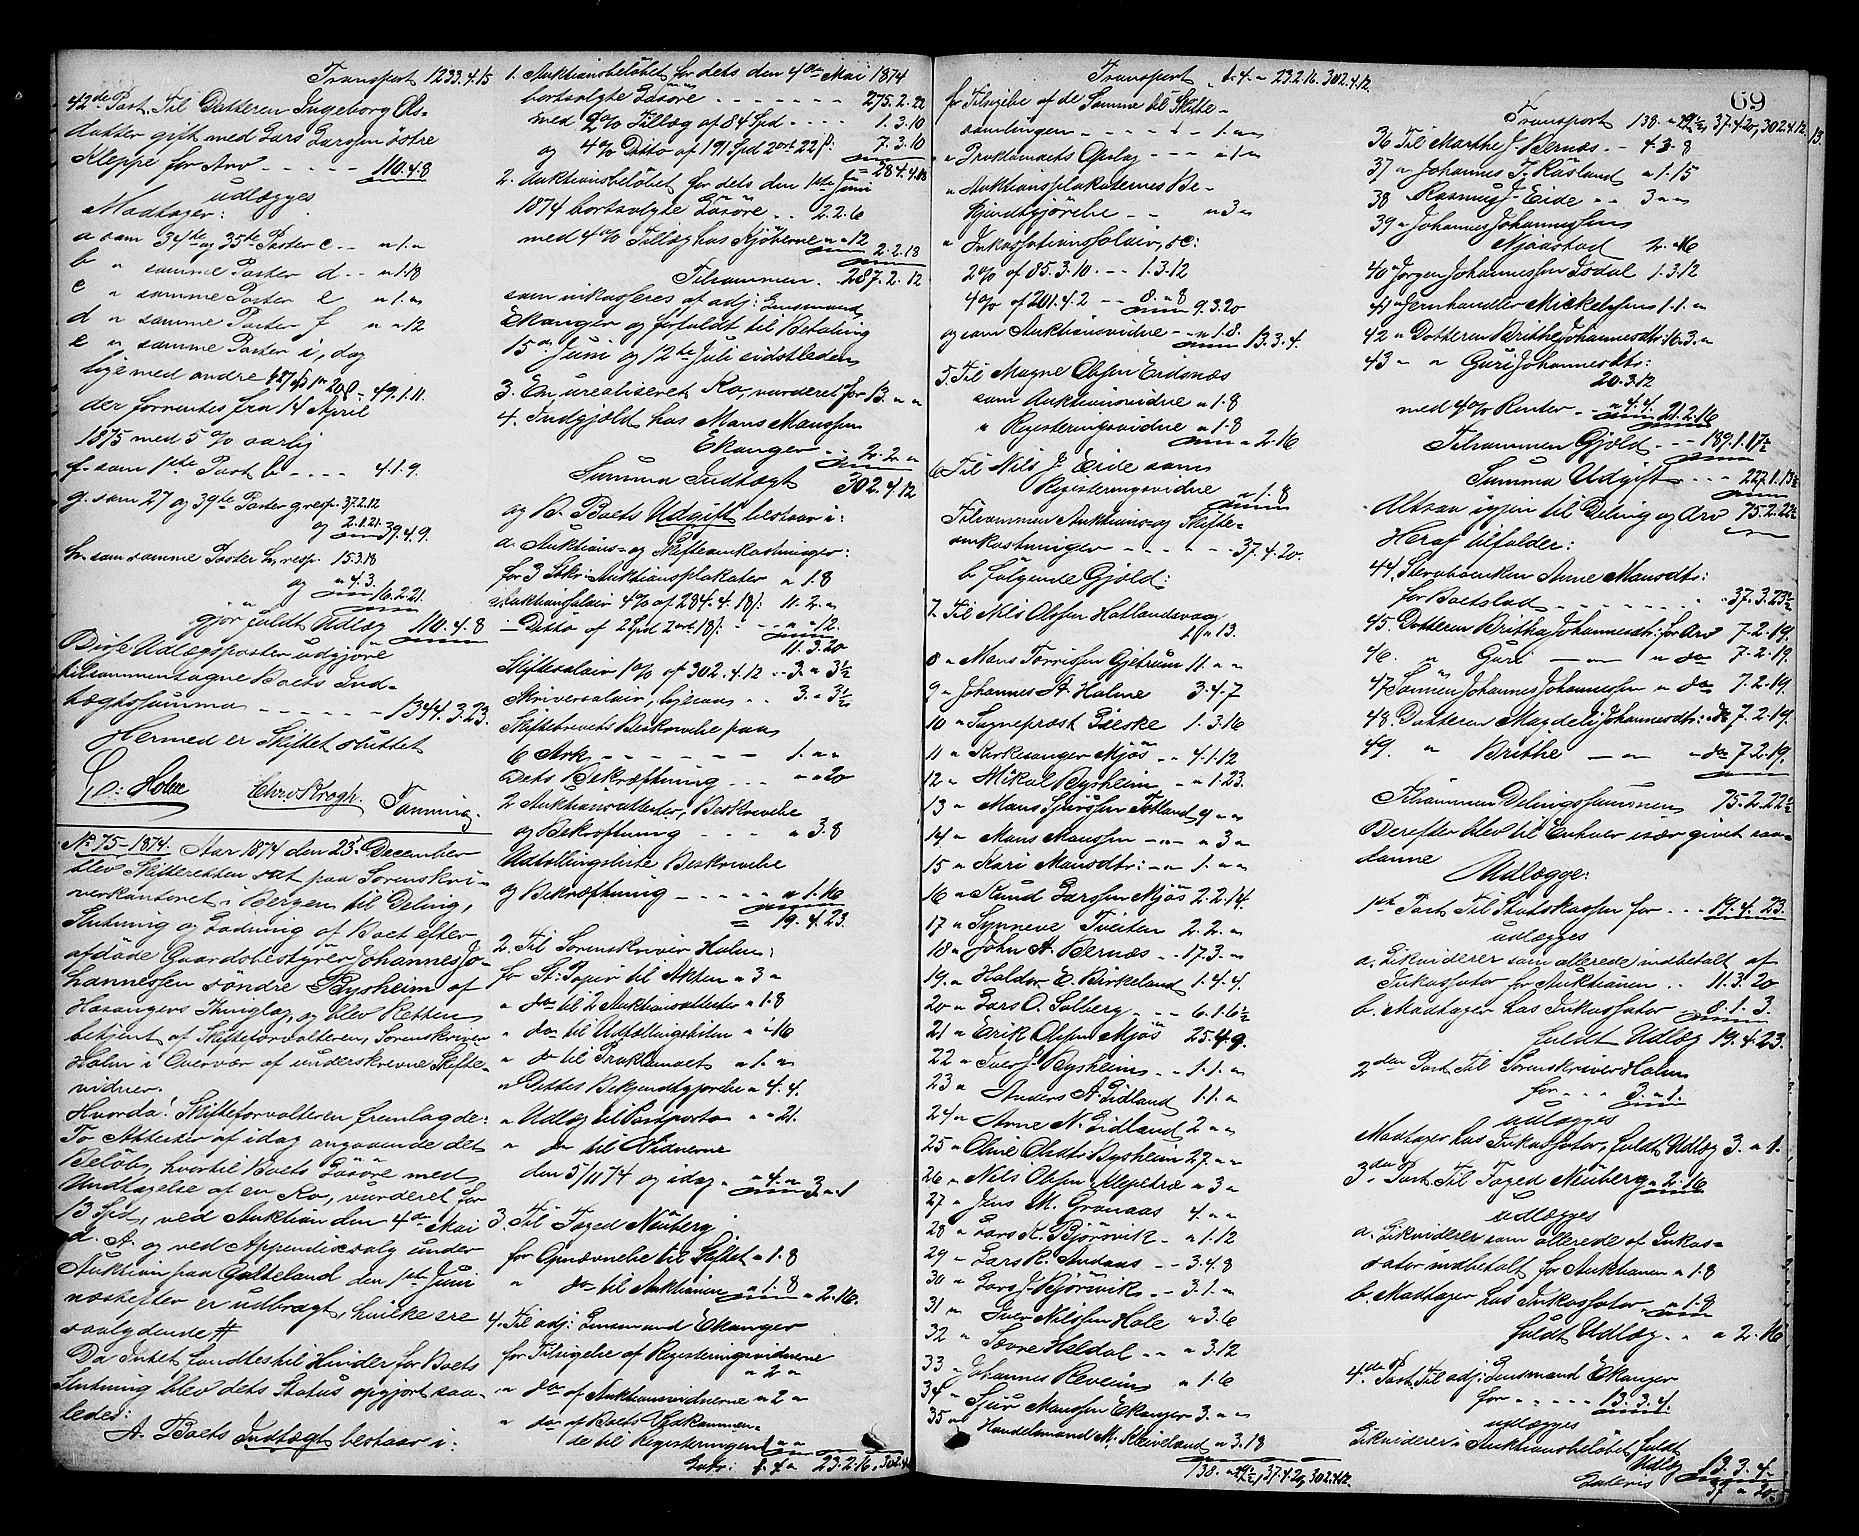 Transport 1233.4.15
42de Post. Til Datteren Ingeborg Ols-
datter gift med Lars Larssen östre
Kleppe for Arv - - - - - 110.4.8
udlægges
Modtager:
a som 34te og 35te Poster c. - - " 1. "
b " samme Poster d - - " 1.18
c " samme Poster e " 1. "
d " samme Poster f " " 12
e " samme Poster i, dog
lige med andre - 49.1.11.
der forrentes fra 14 April
1875 med 5 % aarlig
f. som 1ste Post b - - - - 4.1.9.
g. som 27 og 39te Poster g resp. 37.2.12
og 2.1.21. 39.4.9.
h. som samme Poster h, resp. 15.3.18
og " 4.3. 16.2.21.
gjör fuldt Udlæg 110.4.8
Disse Udlægsposter udgjöre
tilsammentagne Boets Ind-
tægtssumma - - - - - 1344.3.23.
Hermed er Skiftet sluttet
Holm Chr. Krogh.
No 75-1874. Aar 1874 den 23de December
blev Skifteretten sat paa Sorenskri-
verkontoret i Bergen til Deling,
Slutning og Lodning af Boet efter
afdöde Gaardsbestyrer Johannes Jo-
hannessen söndre Bysheim af
Hosangers Thinglag, og blev Retten
betjent af Skifteforvalteren, Sorenskriver
Holm i Overvær af underskrevne Skifte-
vidner.
Hvorda: Skifteforvalteren fremlagde:
To Attester af idag angaaende det
Belöb, hvortil Boets Lösöre med
Undtagelse af en Ko, vurderet for
13 Spd, ved Auktion den 4de Mai
d. A. og ved Appendixsalg under
Auktion paa den 1ste Juni
næstefter er udbragt, hvilke ere
saalydende #
Da Intet fandtes til Hinder for Boets
Slutning blev dets Status opgjort saa-
ledes:
A. Boets Indtægt bestaar i:
1. Auktionsbelöbet for dets den 4de Mai 1874
bortsolgte Lösöre - - - - - - - 275.2.22
med 2 % Tillæg af 84 Spd - - - - 1.3.10
og 4 % Ditto af 191 Spd 2 ort 22 ß: 7.3.10
284.4.18
2. Auktionsbelöbet for dets den 1ste Juni
1874 bortsolgte Lösöre . . 2.2.6
med 4 % Tillæg hos Kjöberne " " 12
2.2.18
Tilsammen. 287.2.12
som inkasseres af adj: Lensmand
Ekanger og forfaldt til Betaling
15de Juni og 12te Juli sidstleden
3. En urealiseret Ko, vurderet for 13. " "
4. Indgjæld hos Mons Monssen
Ekanger - - 2. 2. "
Summa Indtægt 302.4.12
og B. Boets Udgift bestaar i:
a. Auktions- og Skifteomkostninger:
for 3 Stkr: Auktionsplakater " 1.8
Auktionssalair 4 % af 284.4.18 ß: 11.2. "
- Ditto af 2 Spd 2 ort 18 ß: - - " " 12.
11.3.20
Skiftesalair 1 % af 302.4.12 - - 3. " 3½
Skriversalair, ligesaa . . 3. " 3½
Skiftebrevets Beskrivelse paa
6 Ark - - - - - - 1. " "
Dets Bekræftning . . . " " 20
2 Auktionsattester, Beskrivelse
og Bekræftning - - - " 3.8
Udtællingsliste Beskrivelse
og Bekræftning - - - - - " 1.16
19.4.23.
2. Til Sorenskriver Holm:
for St: Papir til Akten " 3 "
" do til 2 Auktionsattester " 1.8
" do til Udtællingslisten " " 16
" do til Proklamaet " 1. "
" Dettes Bekjendtgjörelse " 4.4.
" Udlæg til Postporto " " 21.
" do til Vidnerne
den 5/11 74 og idag " " 4. " 3. " 1
3. Til Foged Nüberg
for Opnævnelse til Skiftet " 1.8
" do til Auktionen " 1.8 " 2.16.
4. Til adj: Lensmand Ekanger
for Tilsigelse af Registeringsvidnerne
" 2 "
" do af Auktionsvidnerne " 2 "
" do af Boets Vedkommen-
de til Registeringen
Latr: 1. 4 " 23.2.16, 302.4.12
Transport 1. 4. " 23.2.16. 302.4.12.
for Tilsigelse af de Samme til Skifte-
samlingen - - - - - - 1. " "
" Proklamaets Oplag - - - " 1 "
" Auktionsplakaternes Be-
kjendtgjörelse - - " 3 "
" Inkassationssalair, sc:
2 % af 85.3.10. - - 1.3.12
4 % af 201.4.2 - - 8. " 8 9.3.20
og som Auktionsvidne - - " 1.8. 13.3.4.
5. Til Magne Olsen Eidsnæs
som Auktionsvidne " 1.8
" Registeringsvidne " 1.8
" 2.16
6. Til Nils J. Eide som
Registeringsvidne " 1.8
Tilsammen Auktions- og Skifte-
omkostninger - - - - - - 37.4.20.
b. fölgende Gjæld:
7. Til Nils Olssen Hatlandsvaag
13.
8 " Mons Torrissen Gjetrum 11. " "
9 " Johannes A. Holme 3.4.7
10 " Sogneprest Gieske 1.3.16
11 " Kirkesanger Mjös . . 4.1.12
12 " Mikal Bysheim - - " 1.23.
13 " Mons Sjurssen Totland 9 " "
14 " Mons Monssen - " - " 3 "
15 " Kari Monsdtr: - " - 1. " "
16 " Knud Larssen Mjös 2.2.14.
17 " Synneve Tveiten 2. 2. "
18 " John A. Bernæs - . 17.3. "
19. " Haldor E. Birkeland 1.4.4.
20 " Lars O. Solberg - . 6.1.6½
21 " Erik Olssen Mjös 25.4.9.
22 " Iver J. Bysheim . . 1. 1. "
23 " Anders A. Eidland 1 1. "
24 " Arne N. Eidland 2 " "
25 " Oline Olsdt: Bysheim 27. " "
26 " Nils Olssen Mepetræ " 3 "
27 " Jens M. Granaas 4. " "
28 " Lars K. Björsvik - " 1.12
29 " Lars R. Andaas - - 3.4.8
30 " Lars J. Björsvik - - 3.1. "
31 " Iver Nilssen Hole " 3.6
32 " Sevre Heldal . . " 3.12
33 " Johannes Kleveim " 1.6
34 " Sjur Monssen Ekanger 3. " "
35 " Handelsmand M. Kleiveland " 3.18
138. , 37.4.20, 302.4.12.
69
Transport 138. 37.4.20, 302.4.12.
36 Til Marthe J. Bernæs - - 4.3.8
37 " Johannes I. Räsland " 1.15
38 Rasmus J. Eide " " 3 " "
39 " Johannes Johannessen
Mjaastad 2. " 16
40 " Jörgen Johannessen Isdal 1.3.12
41 " Jernhandler Mickelsen 1. 1. "
42 " Datteren Brithe Johannesdtr: 16.3. "
43 " " Guri Johannesdtr:
20.3.12
med 4 % Renter - - " 4.4. 21.2.16
Tilsammen Gjæld - - - 189.1.17½
Summa Udgift . . . 227.1.13½
Altsaa igjen til Deling og Arv 75.2.22½
Heraf tilfalder:
44. Stervboenken Anne Monsdtr:
for Boeslod - - - - - - - 37.3.23½
45. Datteren Britha Johannesdtr: for Arv 7.2.19.
46. " Guri - " - " do 7.2.19.
47 Sönnen Johannes Johannessen " do 7.2.19.
48. Datteren Magdeli Johannesdtr: do 7.2.19.
49. " Brithe - " - " do 7.2.19.
Tilsammen Delingssummen 75.2.22½
Derefter blev til Enhver især givet saa-
danne
Udlægge:
1ste Post. Til Statskassen for . . . 19.4.23.
udlægges
a. Likviderer som allerede indbetalt af
Inkassator for Auktionen . . 11.3.20
b. Modtager hos Inkassator 8.1.3.
fuldt Udlæg 19.4.23.
2den Post. Til Sorenskriver Holm
for - - - 3. " 1.
udlægges
Modtager hos Inkassator, fuldt Udlæg 3. " 1.
3die Post. Til Foged Nüberg " 2.16
udlægges
a. Likviderer som allerede af Inkas-
sator indbetalt for Auktionen " 1.8
b. Modtager hos Inkassator " 1.8
fuldt Udlæg . . " 2.16
4de Post. Til adj: Lensmand Ekanger
for - - - - - 13.3.4.
udlægges
Likviderer i Auktionsbelöbet, fuldt
Udlæg 13.3.4.
Lateris 37 " 20